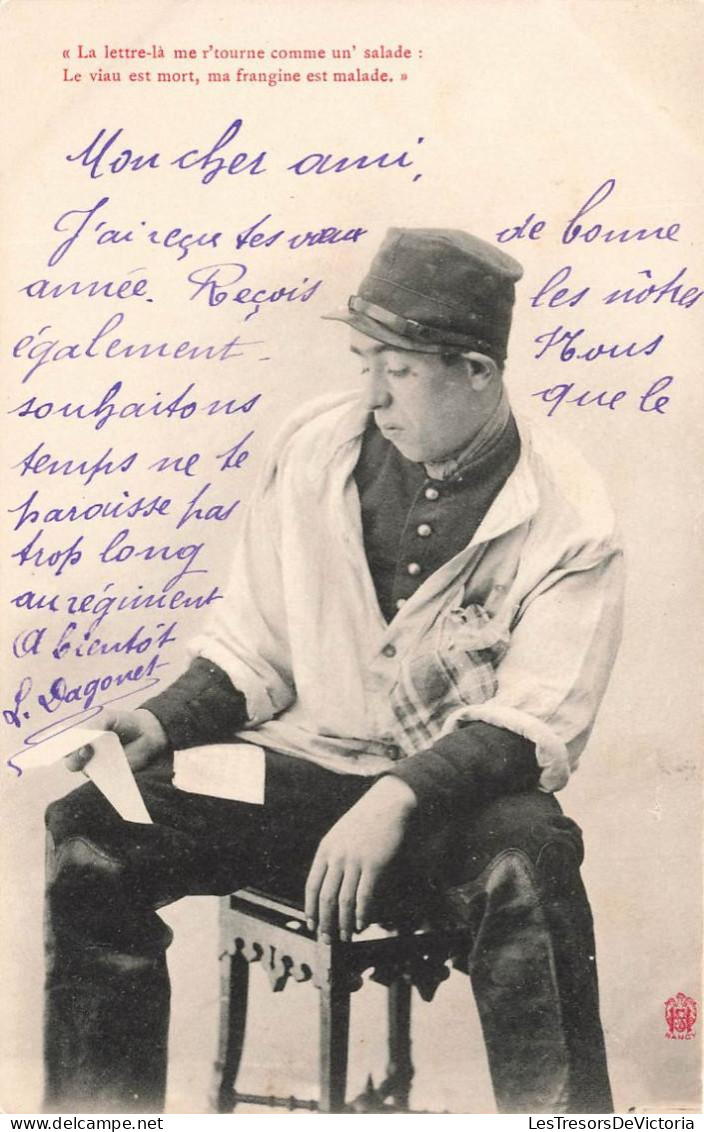 « La lettre-là me r'tourne comme un' salade :
Le viau est mort, ma frangine est malade. »
Mon cher ami,
J'ai reçu tes vœux de bonne
année. Reçois les nôtres
également - Nous
souhaitons que le
temps ne te
paraisse pas
trop long
au régiment
A bientôt
L. Dagonet
NANCY
LesTresorsDeVictoria
www.delcampe.net